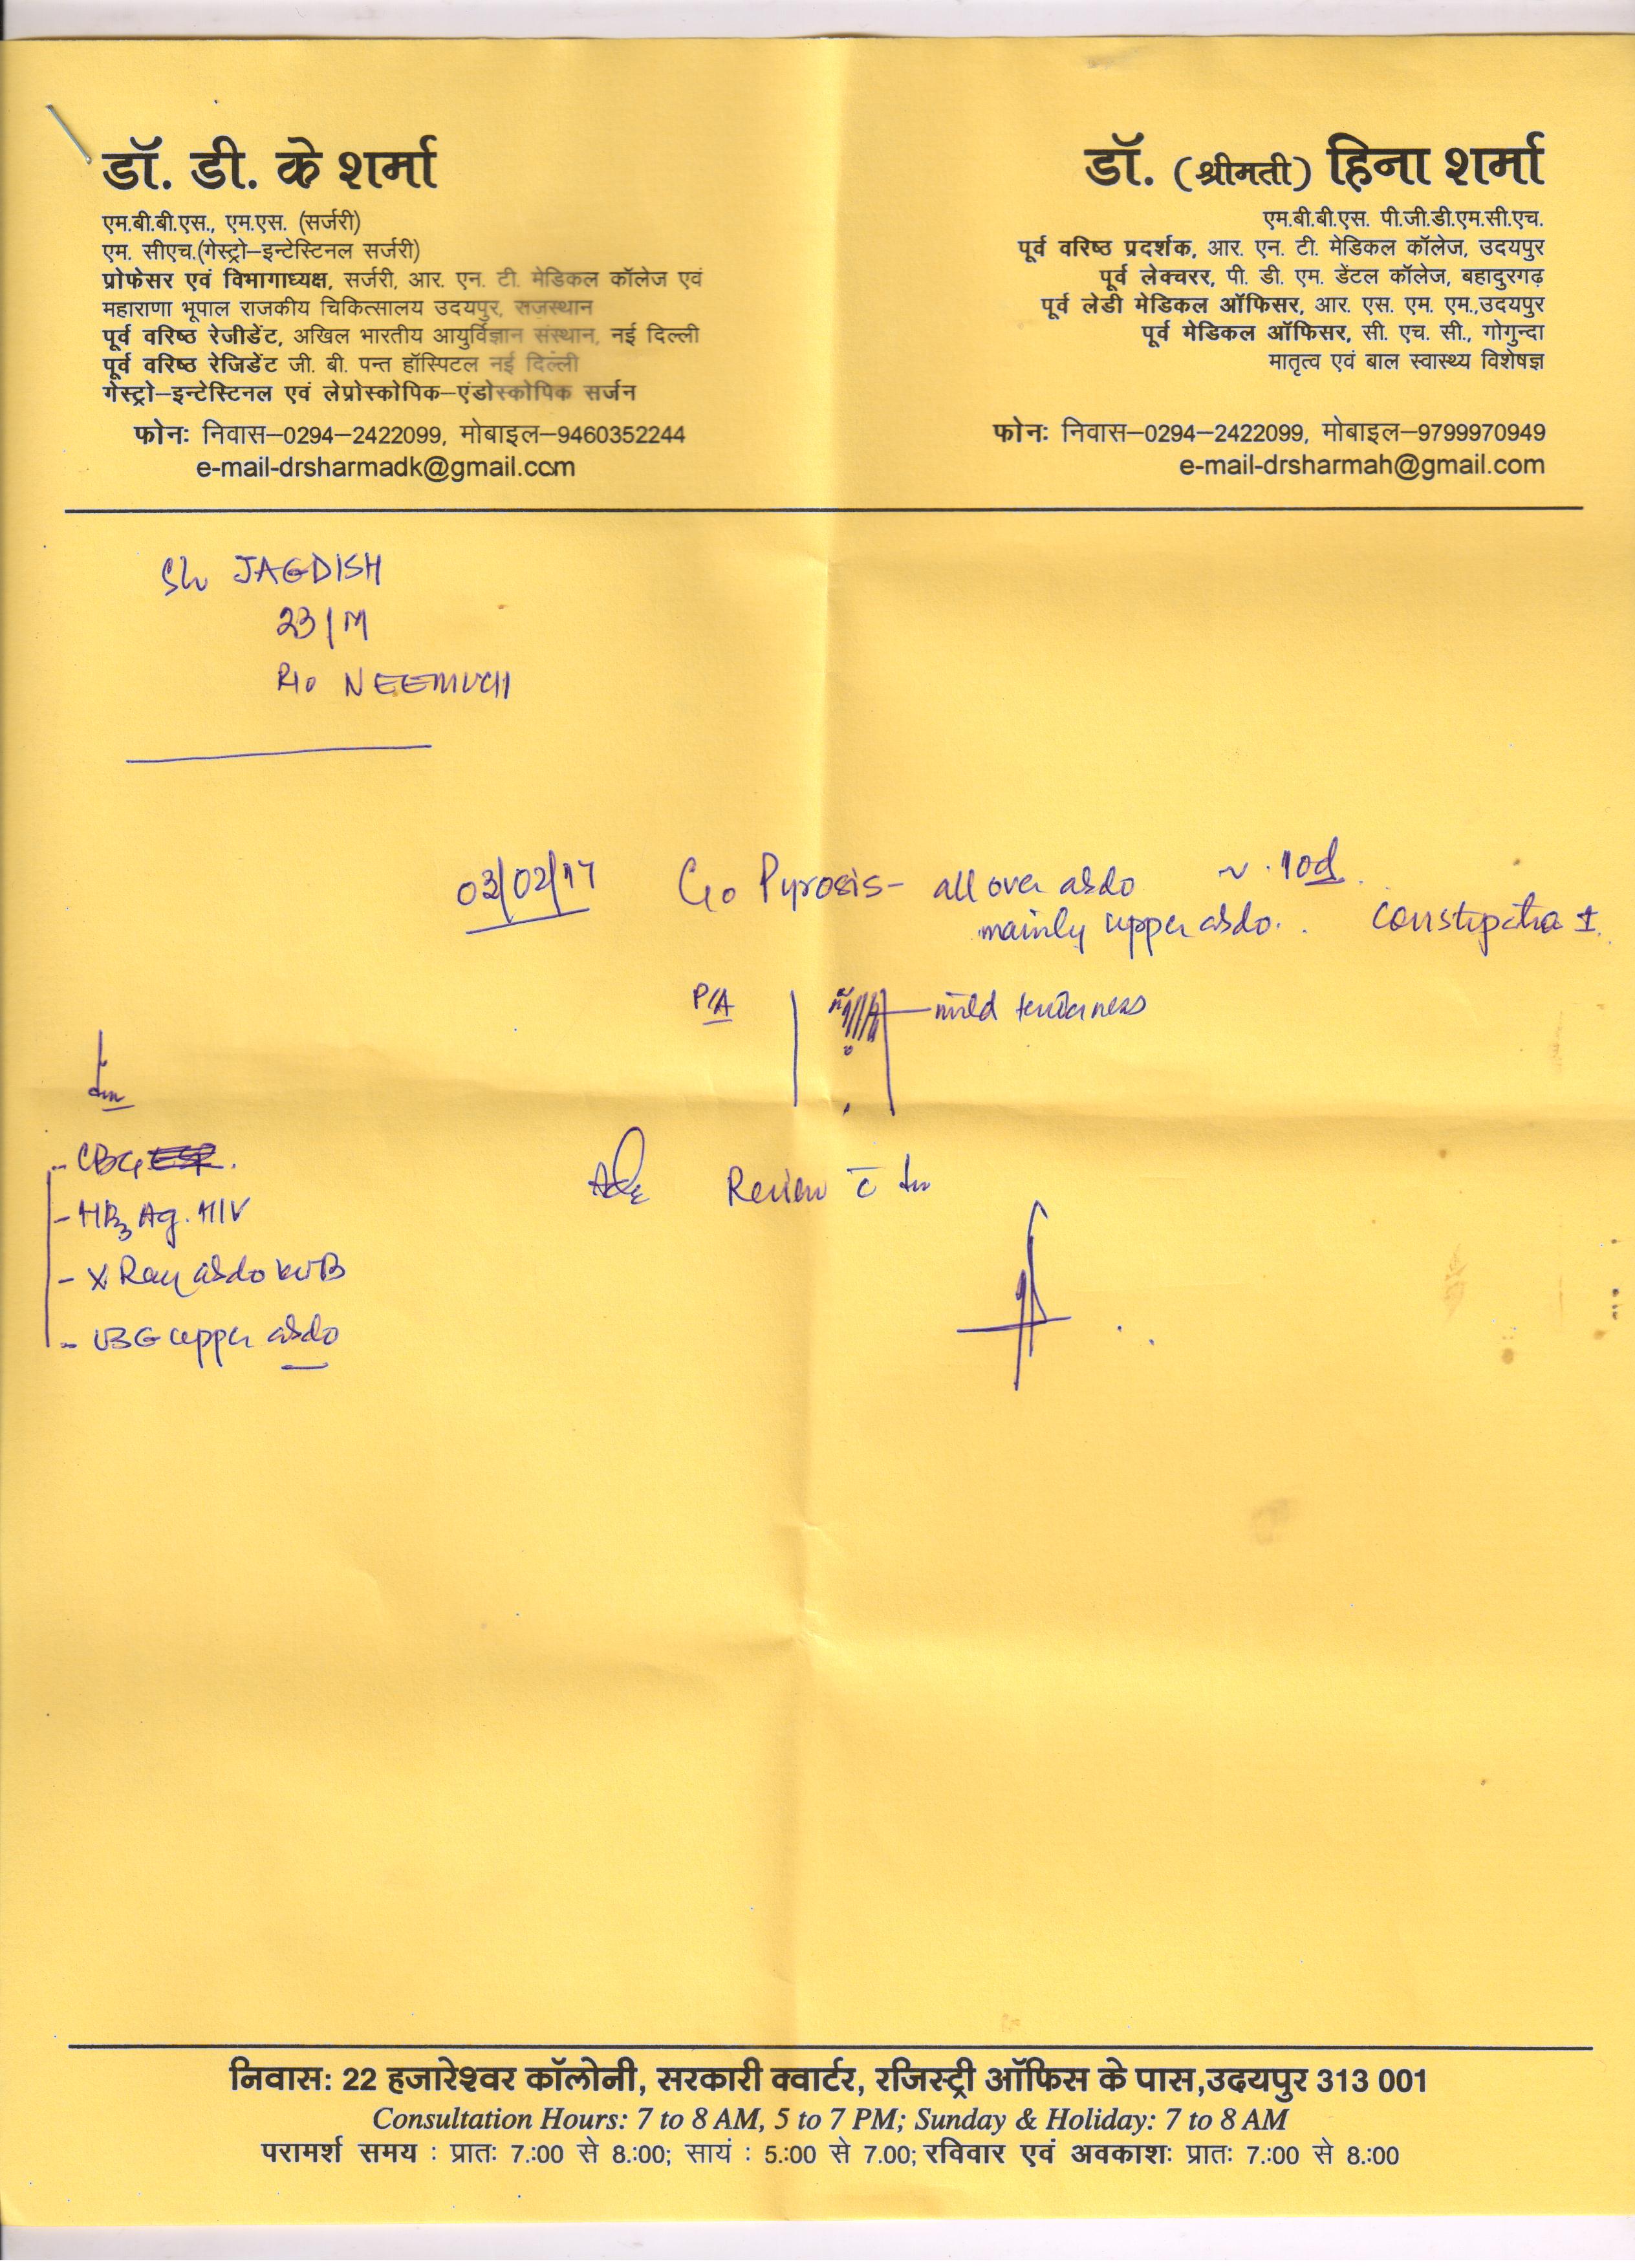 डॉ. डी. के शर्मा
एम.बी.बी.एस., एम.एस. (सर्जरी)
एम. सीएच.(गेस्ट्रो–इन्टेस्टिनल सर्जरी)
प्रोफेसर एवं विभागाध्यक्ष, सर्जरी, आर. एन. टी. मेडिकल कॉलेज एवं
महाराणा भूपाल राजकीय चिकित्सालय उदयपुर, राजस्थान
पूर्व वरिष्ठ रेजीडेंट, अखिल भारतीय आयुर्विज्ञान संस्थान, नई दिल्ली
पूर्व वरिष्ठ रेजिडेंट जी. बी. पन्त हॉस्पिटल नई दिल्ली
गेस्ट्रो–इन्टेस्टिनल एवं लेप्रोस्कोपिक–एंडोस्कोपिक सर्जन
फोनः निवास–0294–2422099, मोबाइल–9460352244
e-mail-drsharmadk@gmail.com
डॉ. (श्रीमती) हिना शर्मा
एम.बी.बी.एस. पी.जी.डी.एम.सी.एच.
पूर्व वरिष्ठ प्रदर्शक, आर. एन. टी. मेडिकल कॉलेज, उदयपुर
पूर्व लेक्चरर, पी. डी. एम. डेंटल कॉलेज, बहादुरगढ़
पूर्व लेडी मेडिकल ऑफिसर, आर. एस. एम. एम.,उदयपुर
पूर्व मेडिकल ऑफिसर, सी. एच. सी., गोगुन्दा
मातृत्व एवं बाल स्वास्थ्य विशेषज्ञ
फोनः निवास–0294–2422099, मोबाइल–9799970949
e-mail-drsharmah@gmail.com
Sh JAGDISH
23/M
R/o NEEMUCH
03/02/17 C/o Pyrosis- all over abdo ~ 10d
mainly upper abdo. Constipation ±
P/A mild tenderness
Inv
- CBC
- HBsAg. HIV
- X Ray abdo KUB
- USG upper abdo
Adv Review c̄ Inv
निवास: 22 हजारेश्वर कॉलोनी, सरकारी क्वार्टर, रजिस्ट्री ऑफिस के पास,उदयपुर 313 001
Consultation Hours: 7 to 8 AM, 5 to 7 PM; Sunday & Holiday: 7 to 8 AM
परामर्श समय : प्रातः 7.:00 से 8.:00; सायं : 5.:00 से 7.00; रविवार एवं अवकाशः प्रातः 7.:00 से 8.:00